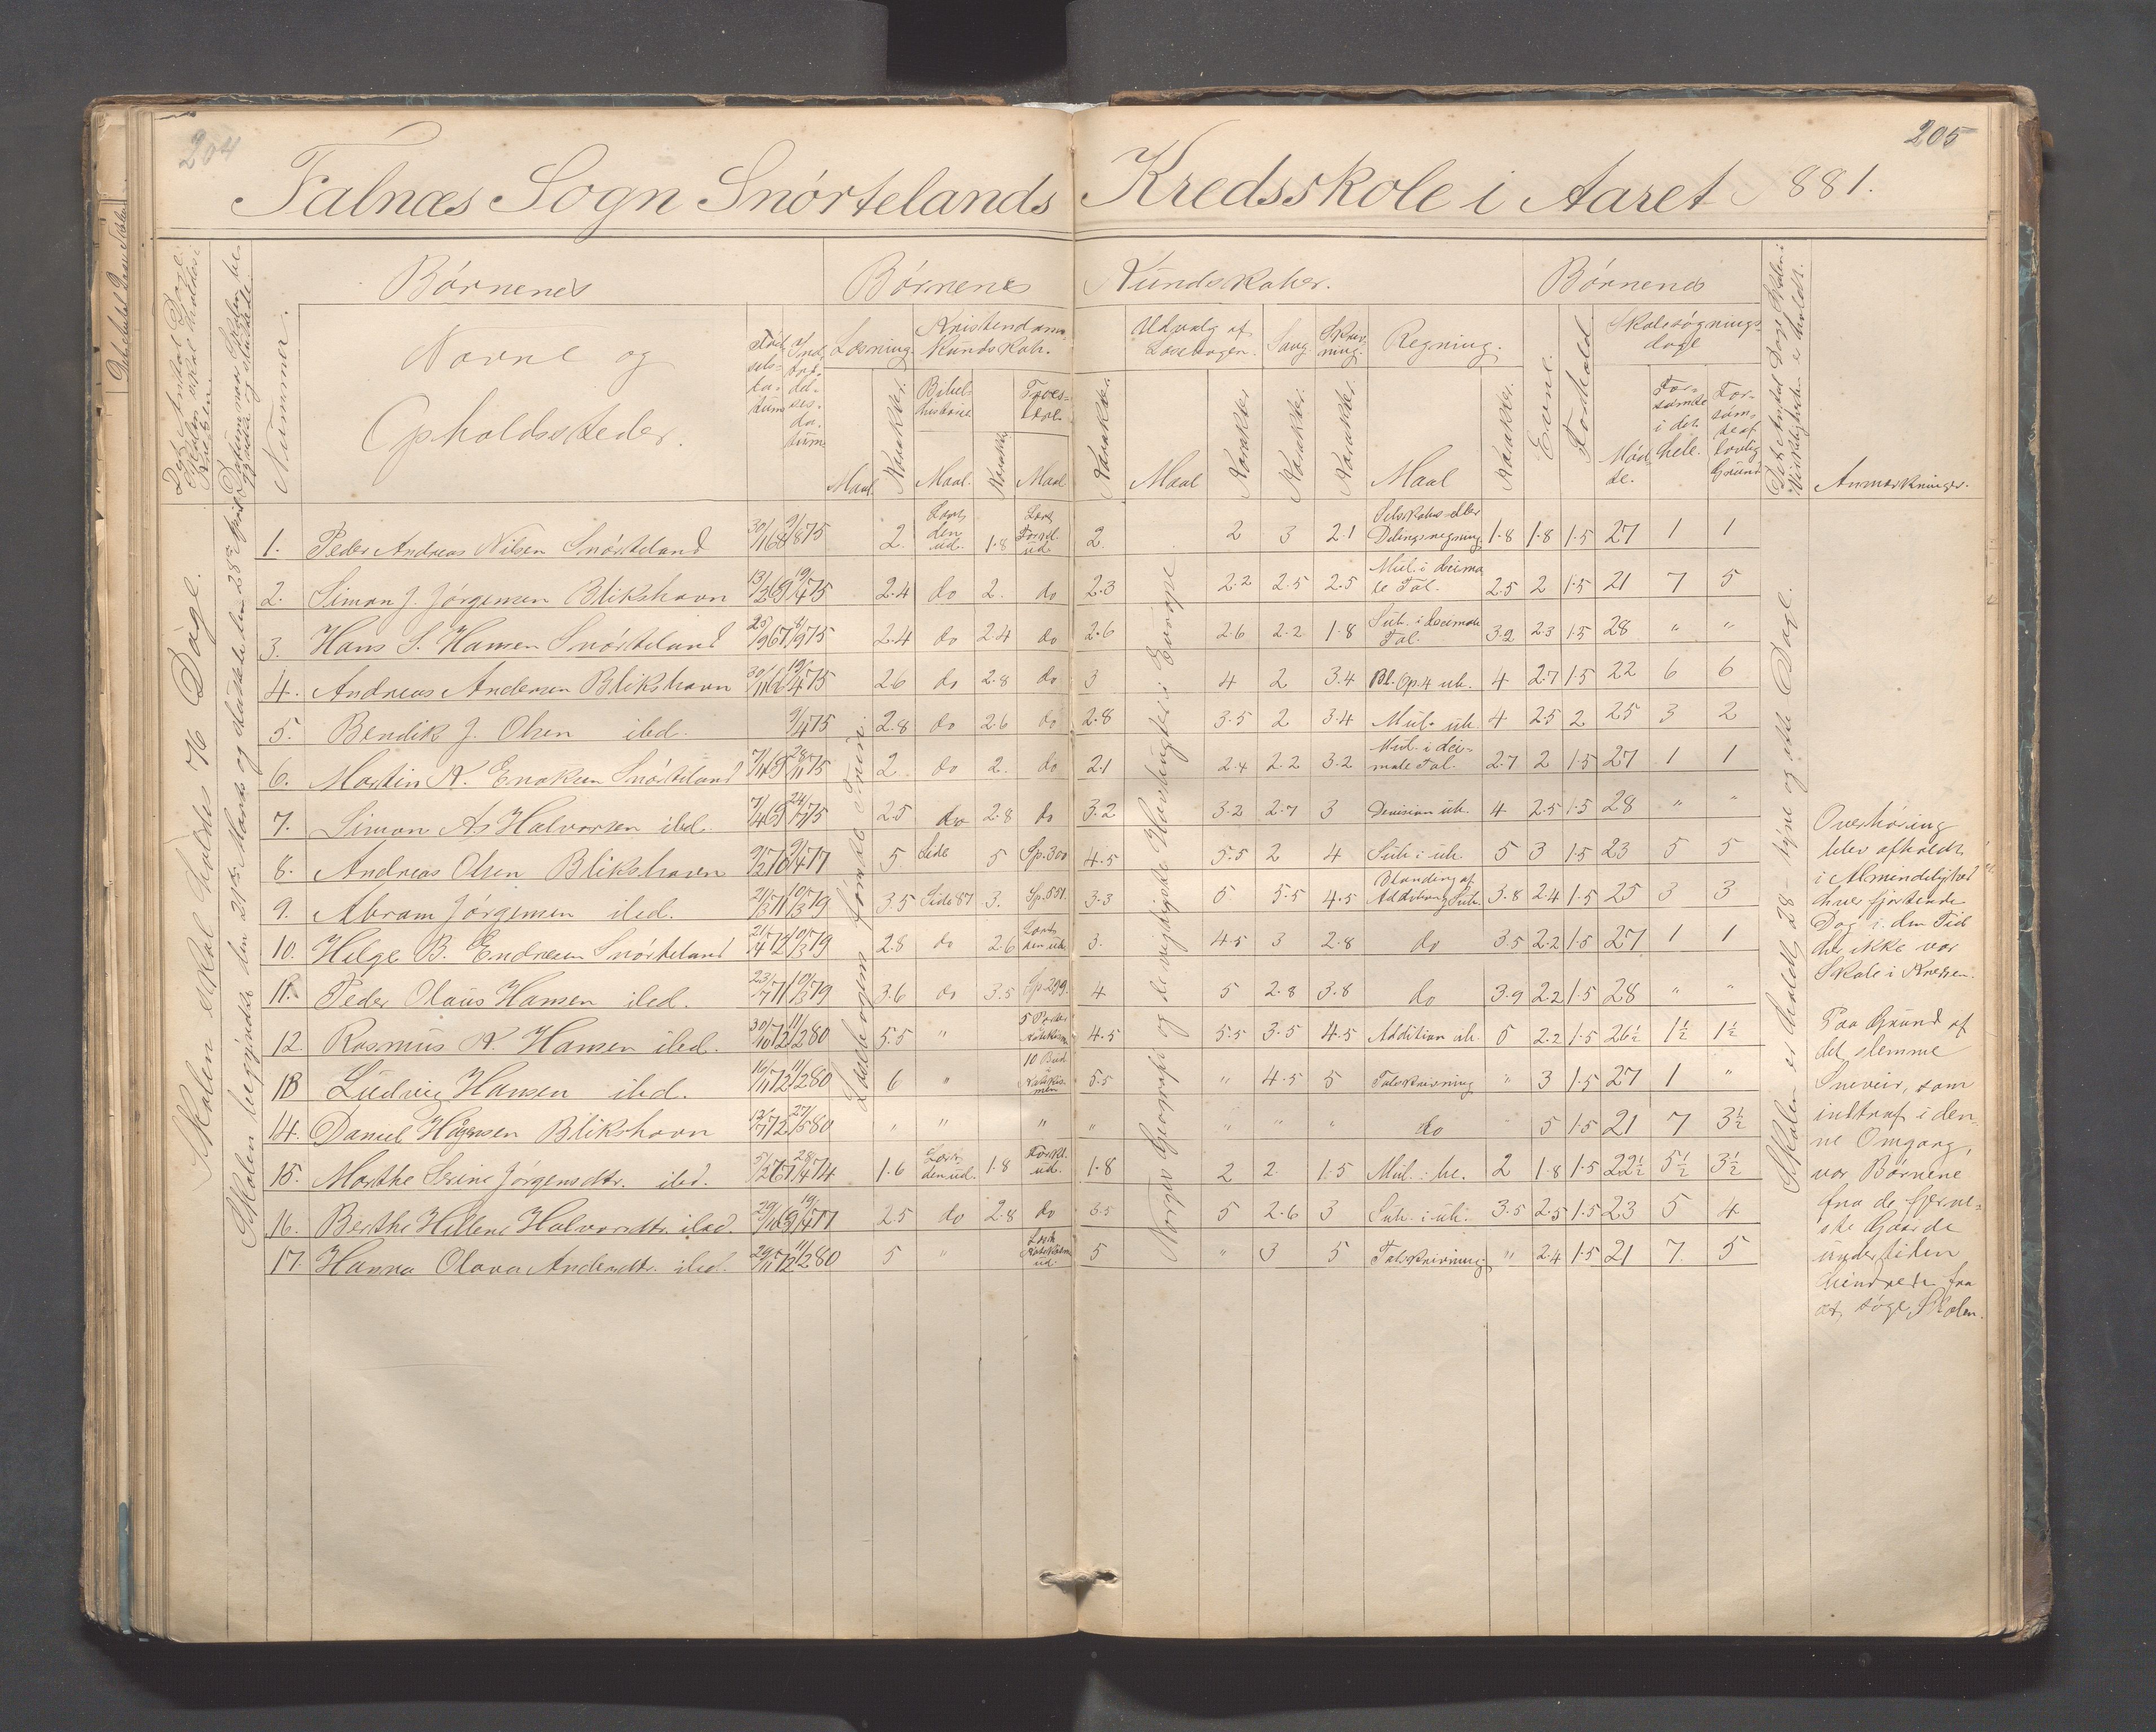 204
205
Falnæs Sogn Snørtelands Kredsskole i Aaret 1881.
Det Antal Dage Skolen skal holdes i Kredsen
Datum naar Skolen begynder og sluttede
Nummer.
Børnenes
Navne og
Opholdssteder.
Fødselsdatum
Indtrædelsesdatum
Børnenes Kundskaber.
Læsning.
Kristendoms Kundskab.
Bibelhistorie
Troeslære
Udvalg af Læsebogen.
Sang
Skrivning.
Regning.
Maal
Karakter.
Børnenes
Evne.
Forhold
Skolesøgningsdage
Mødte.
Forsømte i det hele.
Forsømte af lovlig Grund
Det Antal Dage Skolen i Virkeligheden er holdt.
Anmærkninger.
Skolen skal holdes 76 Dage.
Skolen begyndte den 21de Marts og sluttede den 28de April
Norges Geografi og de vigtigste Hovedstæder i Europa
Skolen er holdt 28 - tyve og otte Dage.
1. Peder Andreas Nilsen Snørteland 2. Lært den ud. 1.8 Lært Forkl. ud 2. 2 3 2.1 Selskabs eller Delingsregning 1.8 1.8 1.5 27 1 1
2. Simon J. Jørgensen Blikshavn 13/2 69 19/4 75 2.4 do 2. do 2.3 2.2 2.5 2.5 Mul. i decimale Tal. 2.5 2 1.5 21 7 5
3. Hans S. Hansen Snørteland 25/9 67 2.4 do 2.4 do 2.6 2.6 2.2 1.8 Sub. i decimale Tal. 3.2 2.3 1.5 28 " "
4. Andreas Andersen Blikshavn 19/4 75 2.6 do 2.8 do 3 4 2 3.4 Bl. Op. 4 ub. 4 2.7 1.5 22 6 6
5. Bendik J. Olsen ibd. 9/4 75 2.8 do 2.6 do 2.8 3.5 2 3.4 Mul. ub. 4 2.5 2 25 3 2
6. Martin K. Enoksen Snørteland 2. do 2. do 2.1 2.4 2.2 3.2 Mul. i decimale Tal. 2.7 2 1.5 27 1 1
7. Simon As Halvorsen ibd. 2.5 do 2.8 do 3.2 3.2 2.7 3 Devision ub. 4 2.5 1.5 28 " "
8. Andreas Olsen Blikshavn 9/2 70 9/4 77 5 Side 5 Sp. 300 4.5 5.5 2 4 Sub. i ub. 5 3 1.5 23 5 5
9. Abram Jørgensen ibd. 21/3 71 10/3 79 3.5 Side 87 3. Sp. 551. 3.3 5 5.5 4.5 Blanding af Addition og Sub. 3.8 2.4 1.5 25 3 3
10. Helge B. Endresen Snørteland 21/4 72 10/3 79 2.8 do 2.6 Lært den ud. 3. 4.5 3 2.8 do 3.5 2.2 1.5 27 1 1
11. Peder Olaus Hansen ibd. 23/7 71 10/3 79 3.6 do 3.5 Sp. 299. 4 5 2.8 3.8 do 3.9 2.2 1.5 28 " "
12. Rasmus K. Hansen ibd. 30/10 72 11/2 80 5.5 " 5 Parter 4.5 5.5 3.5 4.5 Addition ub. 5 2.2 1.5 26½ 1½ 1½
13 Ludvig Hansen ibd. 16/11 72 11/2 80 6 " 10 Bud 5.5 " 4.5 5 Talskrivning " 3 1.5 27 1 "
14. Daniel Blikshavn 27/5 80 " " " " " " " do " 5 1.5 21 7 3½
15. Marthe Serine Jørgensdtr. ibd. 5/2 67 28/4 74 1.6 Lært den ud. 1.8 Forkl. ud. 1.8 2 2. 1.5 Mul. i be. 2 1.8 1.5 22½ 5½ 3½
16. Berthe Hellene Halvorsdtr. ibd. 19/4 77 2.5 do 2.8 do 3.5 5 2.6 3 Sub. i ub. 3.5 2.5 1.5 23 5 4
17. Hanna Olava Andersdtr. ibd. 29/11 72 11/2 80 5 " Lært Katekismen ud. 5 " 3 5 Talskrivning " 2.4 1.5 21 7. 5
Overhøring
blev afholdt
i Almendelighed
hver fjortende
Dag i den Tid
der ikke var
Skole i Kredsen.
Paa Grund af
det slemme
Sneveir, som
indtraf i den-
ne Omgang,
var Børnene
fra de fjerne-
ste Gaarde
undertiden
hindrede fra
at søge Skolen.